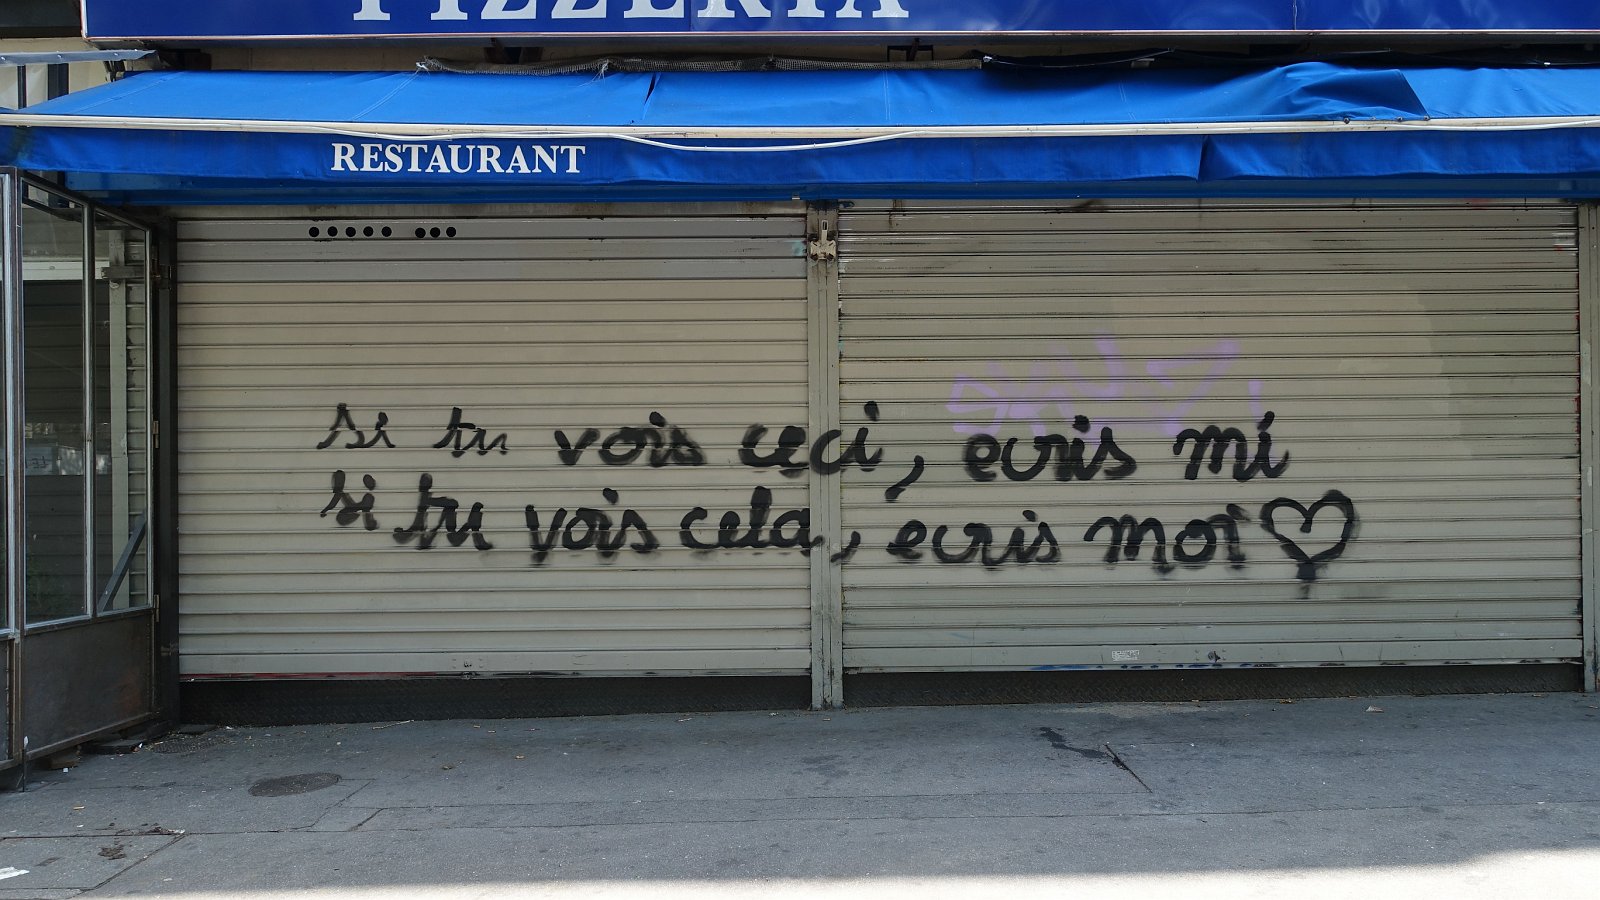 PIZZERIA
RESTAURANT
si tu vois ceci, ecris mi
si tu vois cela, ecris moi